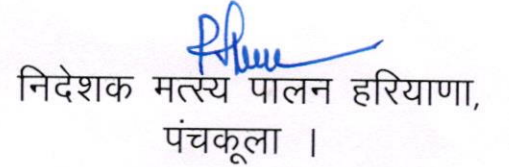 निदेशक मत्स्य पालन हरियाणा,
पंचकूला ।